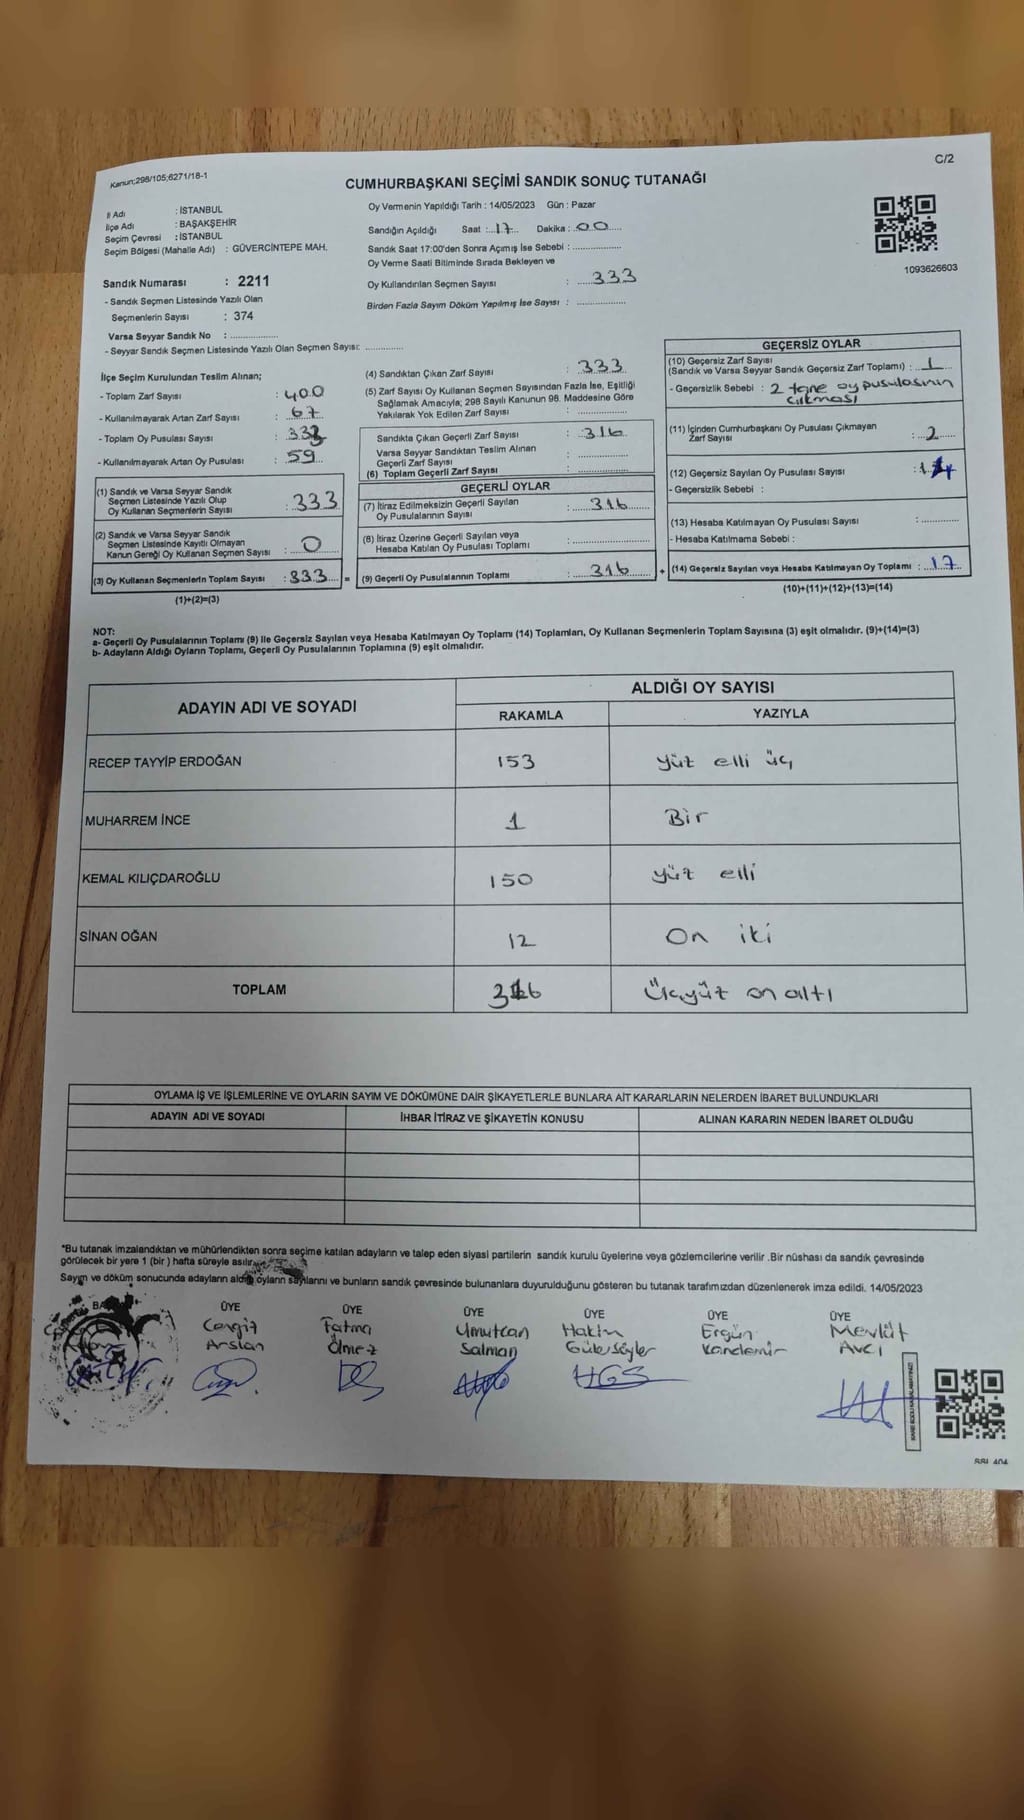 C/2
Kanun;298/105;6271/18-1
CUMHURBAŞKANI SEÇİMİ SANDIK SONUÇ TUTANAĞI
İl Adı : İSTANBUL
İlçe Adı : BAŞAKŞEHİR
Seçim Çevresi : İSTANBUL
Seçim Bölgesi (Mahalle Adı) : GÜVERCİNTEPE MAH.
Oy Vermenin Yapıldığı Tarih : 14/05/2023 Gün : Pazar
Sandığın Açıldığı Saat : 17 Dakika : 00
Sandık Saat 17:00'den Sonra Açımış İse Sebebi :
Oy Verme Saati Bitiminde Sırada Bekleyen ve
Oy Kullandırılan Seçmen Sayısı : 333
Birden Fazla Sayım Döküm Yapılmış İse Sayısı :
1093626603
Sandık Numarası : 2211
- Sandık Seçmen Listesinde Yazılı Olan
Seçmenlerin Sayısı : 374
Varsa Seyyar Sandık No :
- Seyyar Sandık Seçmen Listesinde Yazılı Olan Seçmen Sayısı:
İlçe Seçim Kurulundan Teslim Alınan;
- Toplam Zarf Sayısı : 400
- Kullanılmayarak Artan Zarf Sayısı : 67
- Toplam Oy Pusulası Sayısı : 333
- Kullanılmayarak Artan Oy Pusulası : 59
(1) Sandık ve Varsa Seyyar Sandık
Seçmen Listesinde Yazılı Olup
Oy Kullanan Seçmenlerin Sayısı : 333
(2) Sandık ve Varsa Seyyar Sandık
Seçmen Listesinde Kayıtlı Olmayan
Kanun Gereği Oy Kullanan Seçmen Sayısı : 0
(3) Oy Kullanan Seçmenlerin Toplam Sayısı : 333 =
(1)+(2)=(3)
(4) Sandıktan Çıkan Zarf Sayısı : 333
(5) Zarf Sayısı Oy Kullanan Seçmen Sayısından Fazla İse, Eşitliği
Sağlamak Amacıyla; 298 Sayılı Kanunun 98. Maddesine Göre
Yakılarak Yok Edilen Zarf Sayısı :
Sandıkta Çıkan Geçerli Zarf Sayısı : 316
Varsa Seyyar Sandıktan Teslim Alınan
Geçerli Zarf Sayısı :
(6) Toplam Geçerli Zarf Sayısı :
GEÇERLİ OYLAR
(7) İtiraz Edilmeksizin Geçerli Sayılan
Oy Pusulalarının Sayısı : 316
(8) İtiraz Üzerine Geçerli Sayılan veya
Hesaba Katılan Oy Pusulası Toplamı :
(9) Geçerli Oy Pusulalarının Toplamı : 316 +
GEÇERSİZ OYLAR
(10) Geçersiz Zarf Sayısı
(Sandık ve Varsa Seyyar Sandık Geçersiz Zarf Toplamı) : 1
- Geçersizlik Sebebi : 2 tane oy pusulasının
çıkması
(11) İçinden Cumhurbaşkanı Oy Pusulası Çıkmayan
Zarf Sayısı : 2
(12) Geçersiz Sayılan Oy Pusulası Sayısı : 14
- Geçersizlik Sebebi :
(13) Hesaba Katılmayan Oy Pusulası Sayısı :
- Hesaba Katılmama Sebebi :
(14) Geçersiz Sayılan veya Hesaba Katılmayan Oy Toplamı : 17
(10)+(11)+(12)+(13)=(14)
NOT:
a- Geçerli Oy Pusulalarının Toplamı (9) ile Geçersiz Sayılan veya Hesaba Katılmayan Oy Toplamı (14) Toplamları, Oy Kullanan Seçmenlerin Toplam Sayısına (3) eşit olmalıdır. (9)+(14)=(3)
b- Adayların Aldığı Oyların Toplamı, Geçerli Oy Pusulalarının Toplamına (9) eşit olmalıdır.
ADAYIN ADI VE SOYADI ALDIĞI OY SAYISI
RAKAMLA YAZIYLA
RECEP TAYYİP ERDOĞAN 153 yüz elli üç
MUHARREM İNCE 1 Bir
KEMAL KILIÇDAROĞLU 150 yüz elli
SİNAN OĞAN 12 On iki
TOPLAM 316 Üçyüz on altı
OYLAMA İŞ VE İŞLEMLERİNE VE OYLARIN SAYIM VE DÖKÜMÜNE DAİR ŞİKAYETLERLE BUNLARA AİT KARARLARIN NELERDEN İBARET BULUNDUKLARI
ADAYIN ADI VE SOYADI İHBAR İTİRAZ VE ŞİKAYETİN KONUSU ALINAN KARARIN NEDEN İBARET OLDUĞU
*Bu tutanak imzalandıktan ve mühürlendikten sonra seçime katılan adayların ve talep eden siyasi partilerin sandık kurulu üyelerine veya gözlemcilerine verilir .Bir nüshası da sandık çevresinde
görülecek bir yere 1 (bir ) hafta süreyle asılır.
Sayım ve döküm sonucunda adayların aldığı oyların sayılarını ve bunların sandık çevresinde bulunanlara duyurulduğunu gösteren bu tutanak tarafımızdan düzenlenerek imza edildi. 14/05/2023
ÜYE ÜYE ÜYE ÜYE ÜYE ÜYE
Cengiz Fatma Umutcan Hakim Ergün Mevlüt
Arslan Ölmez Salman Gülersöyler Kandemir Avcı